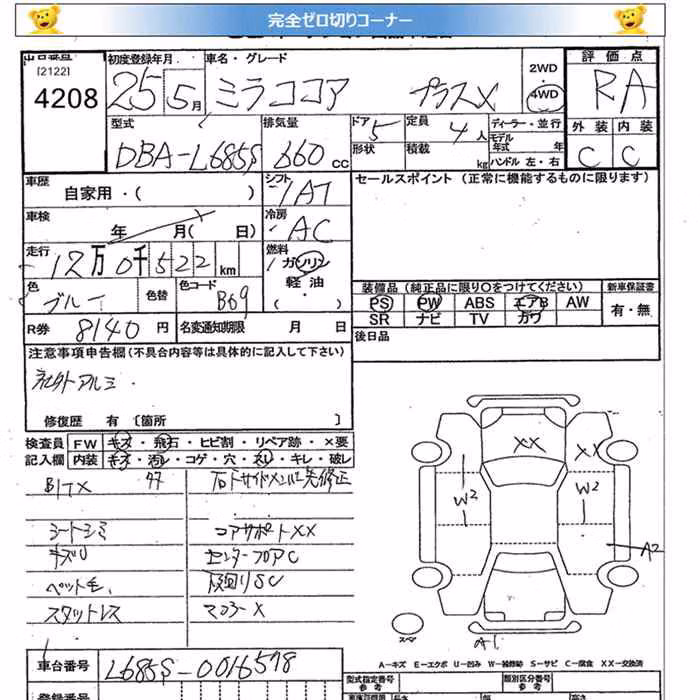 完全ゼロ切りコーナー
出品番号 初度登録年月 車名・グレード 2WD 評価点
[2122]
4208 25年5月 ミラココア プラスX 4WD RA
型式 排気量 ドア 5 定員 4人 ディーラー・並行 外装 内装
モデル年式 年
DBA-L685S 660cc 形状 積載 kg ハンドル 左・右 C C
車歴 シフト セールスポイント (正常に機能するものに限ります)
自家用・( ) IAT
車検 冷房
年 月( 日) AC
走行 燃料
12万0千522km ガソリン
色 色替 色コード 軽油 装備品 (純正品に限り○をつけてください) 新車保証書
ブルー B69 ( ) PS PW ABS エアB AW 有・無
SR ナビ TV カワ
R券 8140円 名変通知期限 月 日 後日品
注意事項申告欄 (不具合内容等は具体的に記入して下さい)
社外アルミ
修復歴 有 [箇所 ]
検査員 FW キズ・飛石・ヒビ割・リペア跡・×要
記入欄 内装 キズ・汚レ・コゲ・穴・スレ・キレ・破レ
XX XX
W2 W2
A2
シートシミ コアサポートXX
キズU センターフロアC
ペット毛 下廻りSC
スタッドレス マフラーX
スペア A1
A-キズ E-エクボ U-凹み W-補修跡 S-サビ C-腐食 XX-交換済
車台番号 L685S-0016578
型式指定番号 類別区分番号
参考 参考
登録番号 長さ 幅 高さ